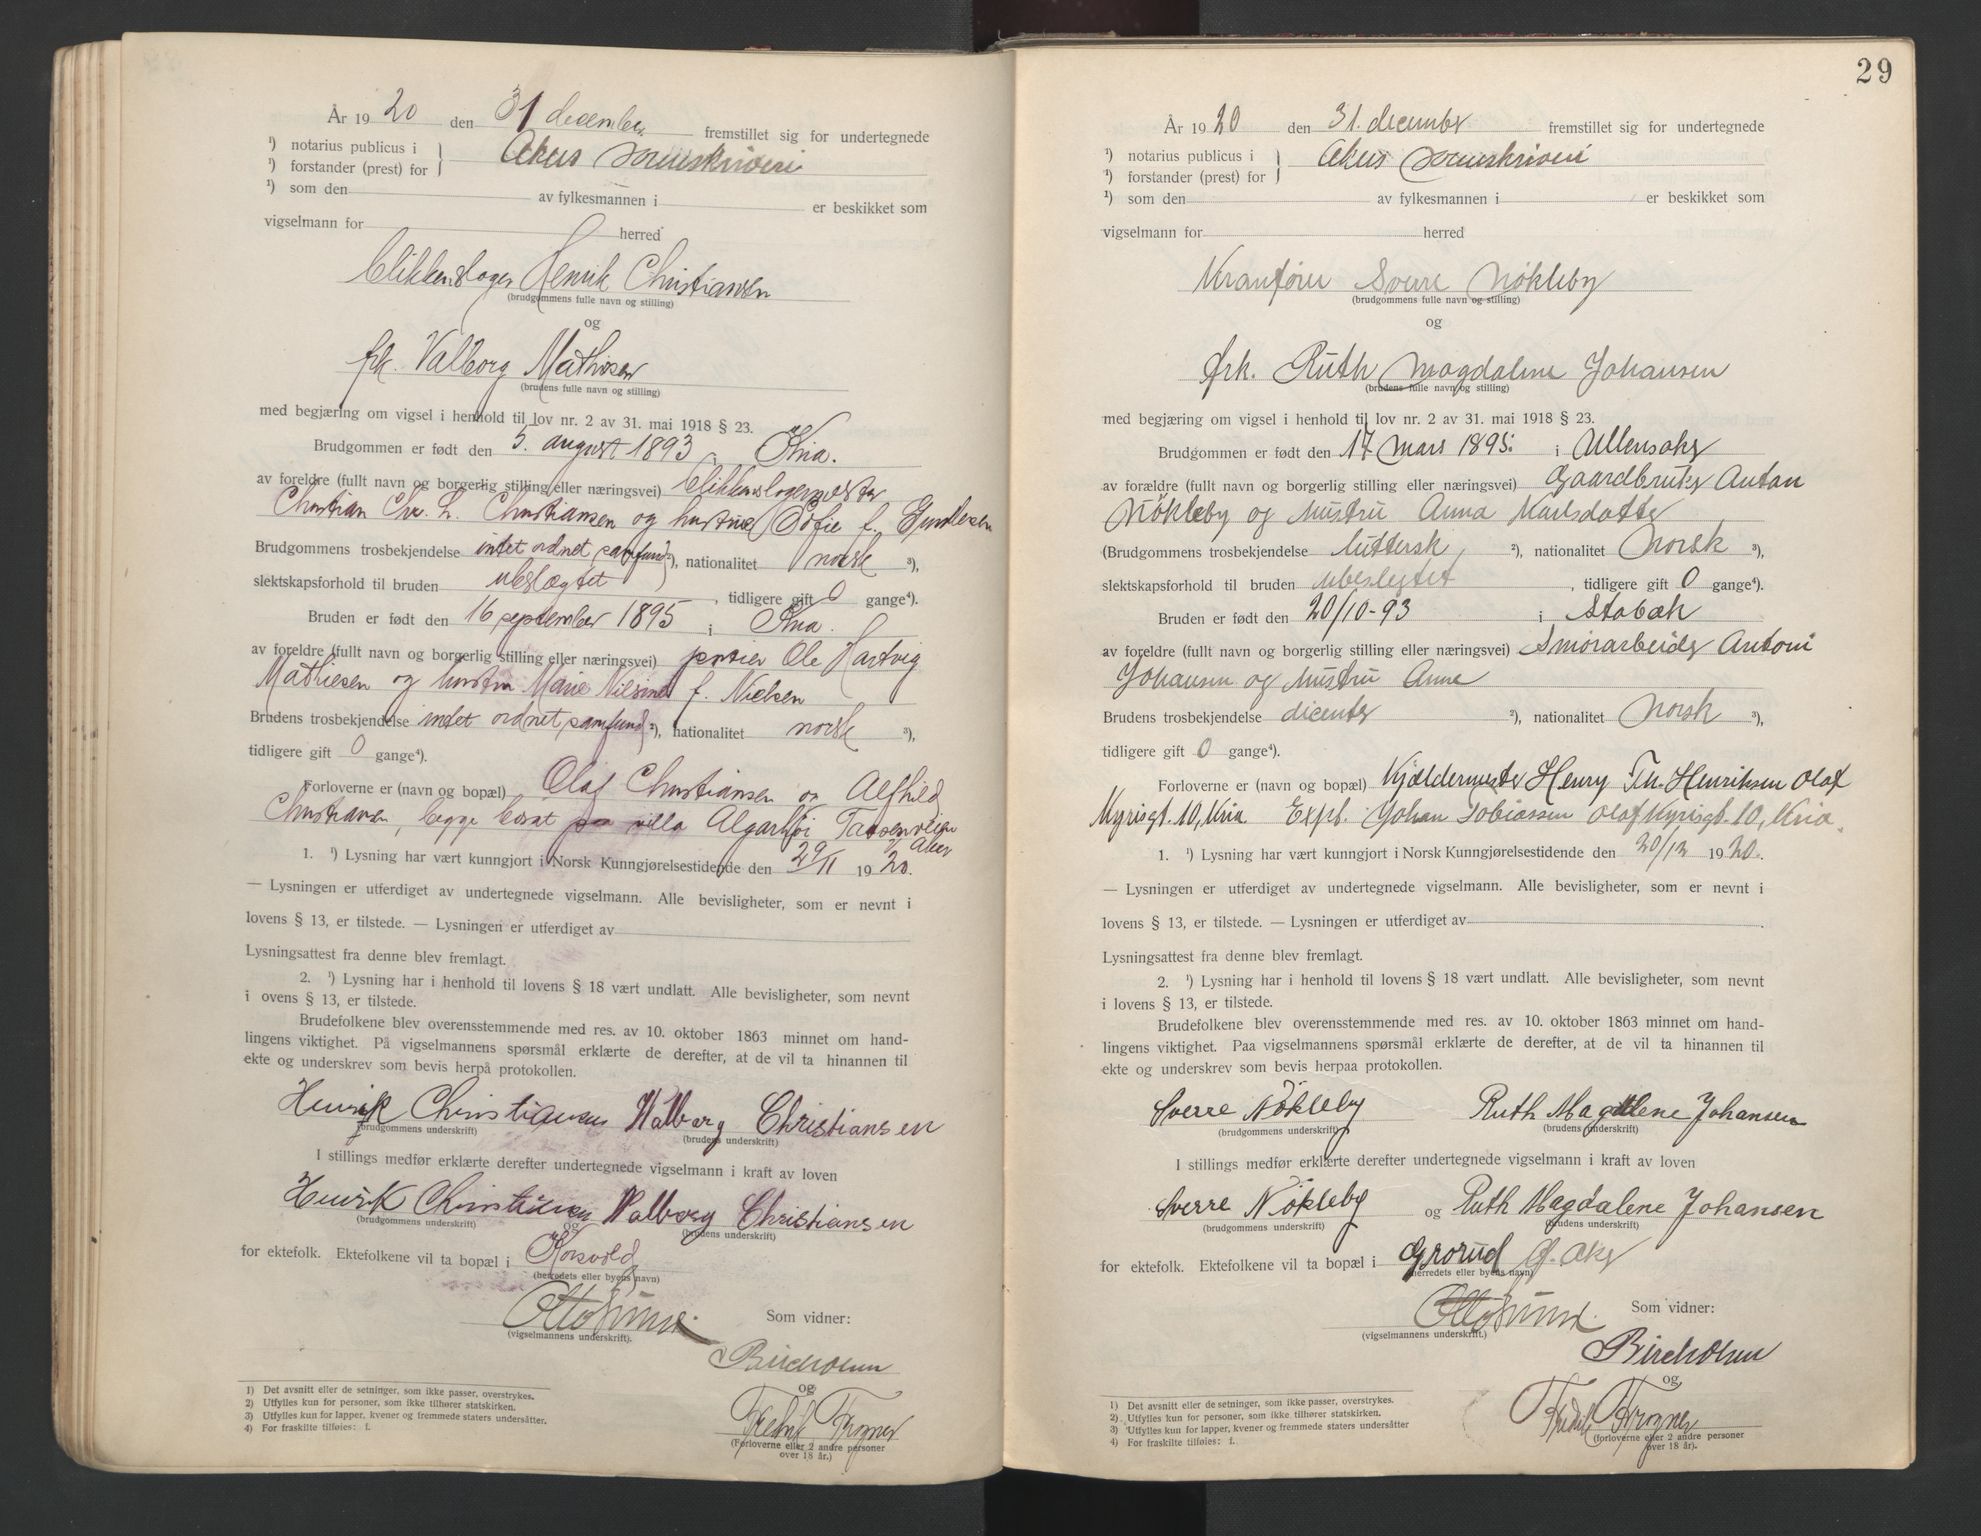 År 1920 den 31 december fremstillet sig for undertegnede
¹) notarius publicus i
¹) forstander (prest) for } Akers sorenskriveri
¹) som den av fylkesmannen i er beskikket som
vigselmann for herred
blikkenslager Henrik Christiansen
(brudgommens fulle navn og stilling)
og
frk. Valborg Mathisen
(brudens fulle navn og stilling)
med begjæring om vigsel i henhold til lov nr. 2 av 31. mai 1918 § 23.
Brudgommen er født den 5. august 1893 i Kria.
av foreldre (fullt navn og borgerlig stilling eller næringsvei) blikkenslagermester
Christian Chr. L. Christiansen og hustru Sofie f. Gundersen
Brudgommens trosbekjendelse intet ordnet samfund ²), nationalitet norsk ³),
slektskapsforhold til bruden ubeslægtet, tidligere gift 0 gange⁴).
Bruden er født den 16 september 1895 i Kria.
av foreldre (fullt navn og borgerlig stilling eller næringsvei) portier Ole Hartvig
Mathiesen og hustru Marie Nilsine f. Nielsen
Brudens trosbekjendelse intet ordnet samfund ²), nationalitet norsk ³),
tidligere gift 0 gange⁴).
Forloverne er (navn og bopæl) Olaf Christiansen og Alfhild
Christiansen, begge bosat paa villa Taasenveien
v/ Aker
1. ¹) Lysning har vært kunngjort i Norsk Kunngjørelsestidende den 29/11 1920.
— Lysningen er utferdiget av undertegnede vigselmann. Alle bevisligheter, som er nevnt i
lovens § 13, er tilstede. — Lysningen er utferdiget av
Lysningsattest fra denne blev fremlagt.
2. ¹) Lysning har i henhold til lovens § 18 vært undlatt. Alle bevisligheter, som nevnt
i ovens § 13, er tilstede.
Brudefolkene blev overensstemmende med res. av 10. oktober 1863 minnet om hand-
lingens viktighet. På vigselmannens spørsmål erklærte de derefter, at de vil ta hinannen til
ekte og underskrev som bevis herpå protokollen.
Henrik Christiansen Valborg Christiansen
(brudgommens underskrift) (brudens underskrift)
I stillings medfør erklærte derefter undertegnede vigselmann i kraft av loven
Henrik Christiansen Valborg Christiansen
(brudgommens underskrift) og (brudens underskrift)
for ektefolk. Ektefolkene vil ta bopæl i Korsvold
(herredets eller byens navn)
Som vidner:
(vigselmannens underskrift).
og
Fredrik Frogner
(Forloverne eller 2 andre personer
over 18 år.)
1) Det avsnitt eller de setninger, som ikke passer, overstrykes.
2) Utfylles kun for personer, som ikke tilhører statskirken.
3) Utfylles kun for lapper, kvener og fremmede staters undersåtter.
4) For fraskilte tilføies: f.
29
År 1920 den 31. december fremstillet sig for undertegnede
¹) notarius publicus i
¹) forstander (prest) for } Akers sorenskriveri
¹) som den av fylkesmannen i er beskikket som
vigselmann for herred
Kranfører Sverre Nökleby
(brudgommens fulle navn og stilling)
og
frk. Ruth Magdalene Johansen
(brudens fulle navn og stilling)
med begjæring om vigsel i henhold til lov nr. 2 av 31. mai 1918 § 23.
Brudgommen er født den 17 mars 1895. i Ullensaker
av forældre (fullt navn og borgerlig stilling eller næringsvei) Gaardbruker Anton
Nökleby og Hustru Anna Karlsdatter
(Brudgommens trosbekjendelse luttersk ²), nationalitet Norsk ³),
slektskapsforhold til bruden ubeslegtet, tidligere gift 0 gange⁴).
Bruden er født den 20/10-93 i Stabæk
av foreldre (fullt navn og borgerlig stilling eller næringsvei) Antoni
Johansen og Hustru Anne
Brudens trosbekjendelse dicenter ²), nationalitet Norsk ³),
tidligere gift 0 gange⁴).
Forloverne er (navn og bopæl) Kjældermester Henry Th. Henriksen Olaf
Kyrisgt. 10, Kria Exp. Johan Tobiassen Olaf Kyrisgt. 10, Kria.
1. ¹) Lysning har vært kunngjort i Norsk Kunngjørelsestidende den 20/12 1920.
— Lysningen er utferdiget av undertegnede vigselmann. Alle bevisligheter, som er nevnt i
lovens § 13, er tilstede. — Lysningen er utferdiget av
Lysningsattest fra denne blev fremlagt.
2. ¹) Lysning har i henhold til lovens § 18 vært undlatt. Alle bevisligheter, som nevnt
i lovens § 13, er tilstede.
Brudefolkene blev overensstemmende med res. av 10. oktober 1863 minnet om hand-
lingens viktighet. Paa vigselmannens spørsmål erklærte de derefter, at de vil ta hinannen til
ekte og underskrev som bevis herpaa protokollen.
Sverre Nökleby Ruth Magdalene Johansen
(brudgommens underskrift) (brudens underskrift)
I stillings medfør erklærte derefter undertegnede vigselmann i kraft av loven
Sverre Nökleby og Ruth Magdalene Johansen
(brudgommens underskrift) (brudens underskrift)
for ektefolk. Ektefolkene vil ta bopæl i Grorud Ø. Aker
(herredets eller byens navn)
Som vidner:
(vigselmannens underskrift.)
og
Fredrik Frogner
(forloverne eller 2 andre personer
over 18 år).
1) Det avsnitt eller de setninger, som ikke passer, overstrykes.
2) Utfylles kun for personer, som ikke tilhører statskirken.
3) Utfylles kun for lapper, kvener og fremmede staters undersåtter
4) For fraskilte tilføies: f.